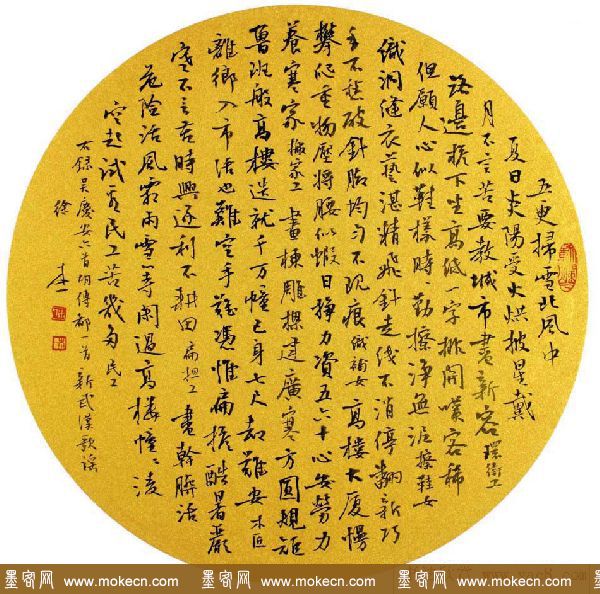 五更掃雪北風中
夏日炎陽受火烘披星戴
月不言苦要教城市畫新容環衛工
路邊下坐高低一字排開嘆客稀
但願人心似鞋樣時勤擦淨無泥擦鞋女
洞縫衣藝湛精飛針走线不消停翻新巧
手不破針腳均匀不現痕補女高樓大廈慢
攀爬重物壓將腰似蝦日掙力資五六十心安勞力
養寒家搬家工畫棟雕樑建廣寒方圓規矩
魯班般高樓造就千万幢己身七尺却難安木匠
離鄉入市活也難空手難憑惟扁担酷暑嚴
寒不言苦時興逐利不耕田扁担工盡幹髒活
危险活風霜雨雪等閑過高樓幢〻凌
空起試看民工苦幾多民工
右錄吴慶安六首胡傳郁一首新武漢歌謡
徐本一
墨客网 www.mokecn.com 墨客网 www.mokecn.com 墨客网 www.mokecn.com